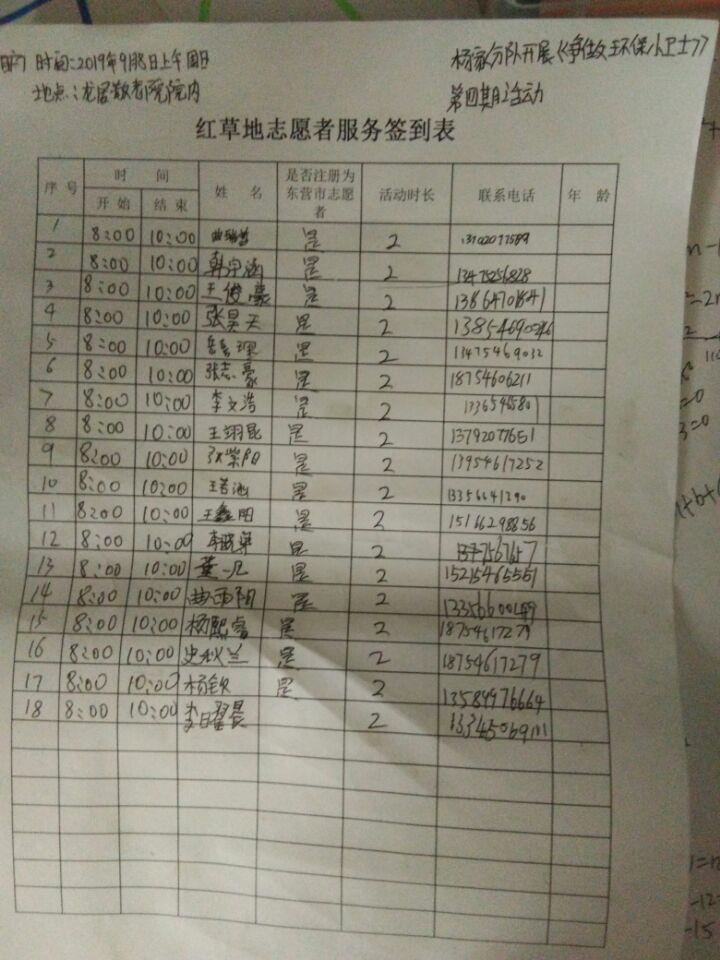 时间:2019年9月8日上午 周日
杨家分队开展《争做环保小卫士》
地点:龙居敬老院院内
第四期活动
红草地志愿者服务签到表
序号 时间 姓名 是否注册为东营市志愿者 活动时长 联系电话 年龄
开始 结束
1 8:00 10:00 是 2
2 8:00 10:00 韩宇涵 是 2 13475256828
3 8:00 10:00 王俊豪 是 2 13864701841
4 8:00 10:00 张昊天 是 2
5 8:00 10:00 是 2 13475469032
6 8:00 10:00 张志豪 是 2 18754606211
7 8:00 10:00 李文浩 是 2
8 8:00 10:00 王翊昆 是 2 13792077651
9 8:00 10:00 张紫阳 是 2 13954617252
10 8:00 10:00 是 2
11 8:00 10:00 王鑫阳 是 2 15166298856
12 8:00 10:00 是 2
13 8:00 10:00 董一凡 是 2 15215465551
14 8:00 10:00 曲雨阳 是 2
15 8:00 10:00 杨熙睿 是 2 18754617279
16 8:00 10:00 史秋兰 是 2 18754617279
17 8:00 10:00 杨钦 是 2 13589976664
18 8:00 10:00 2